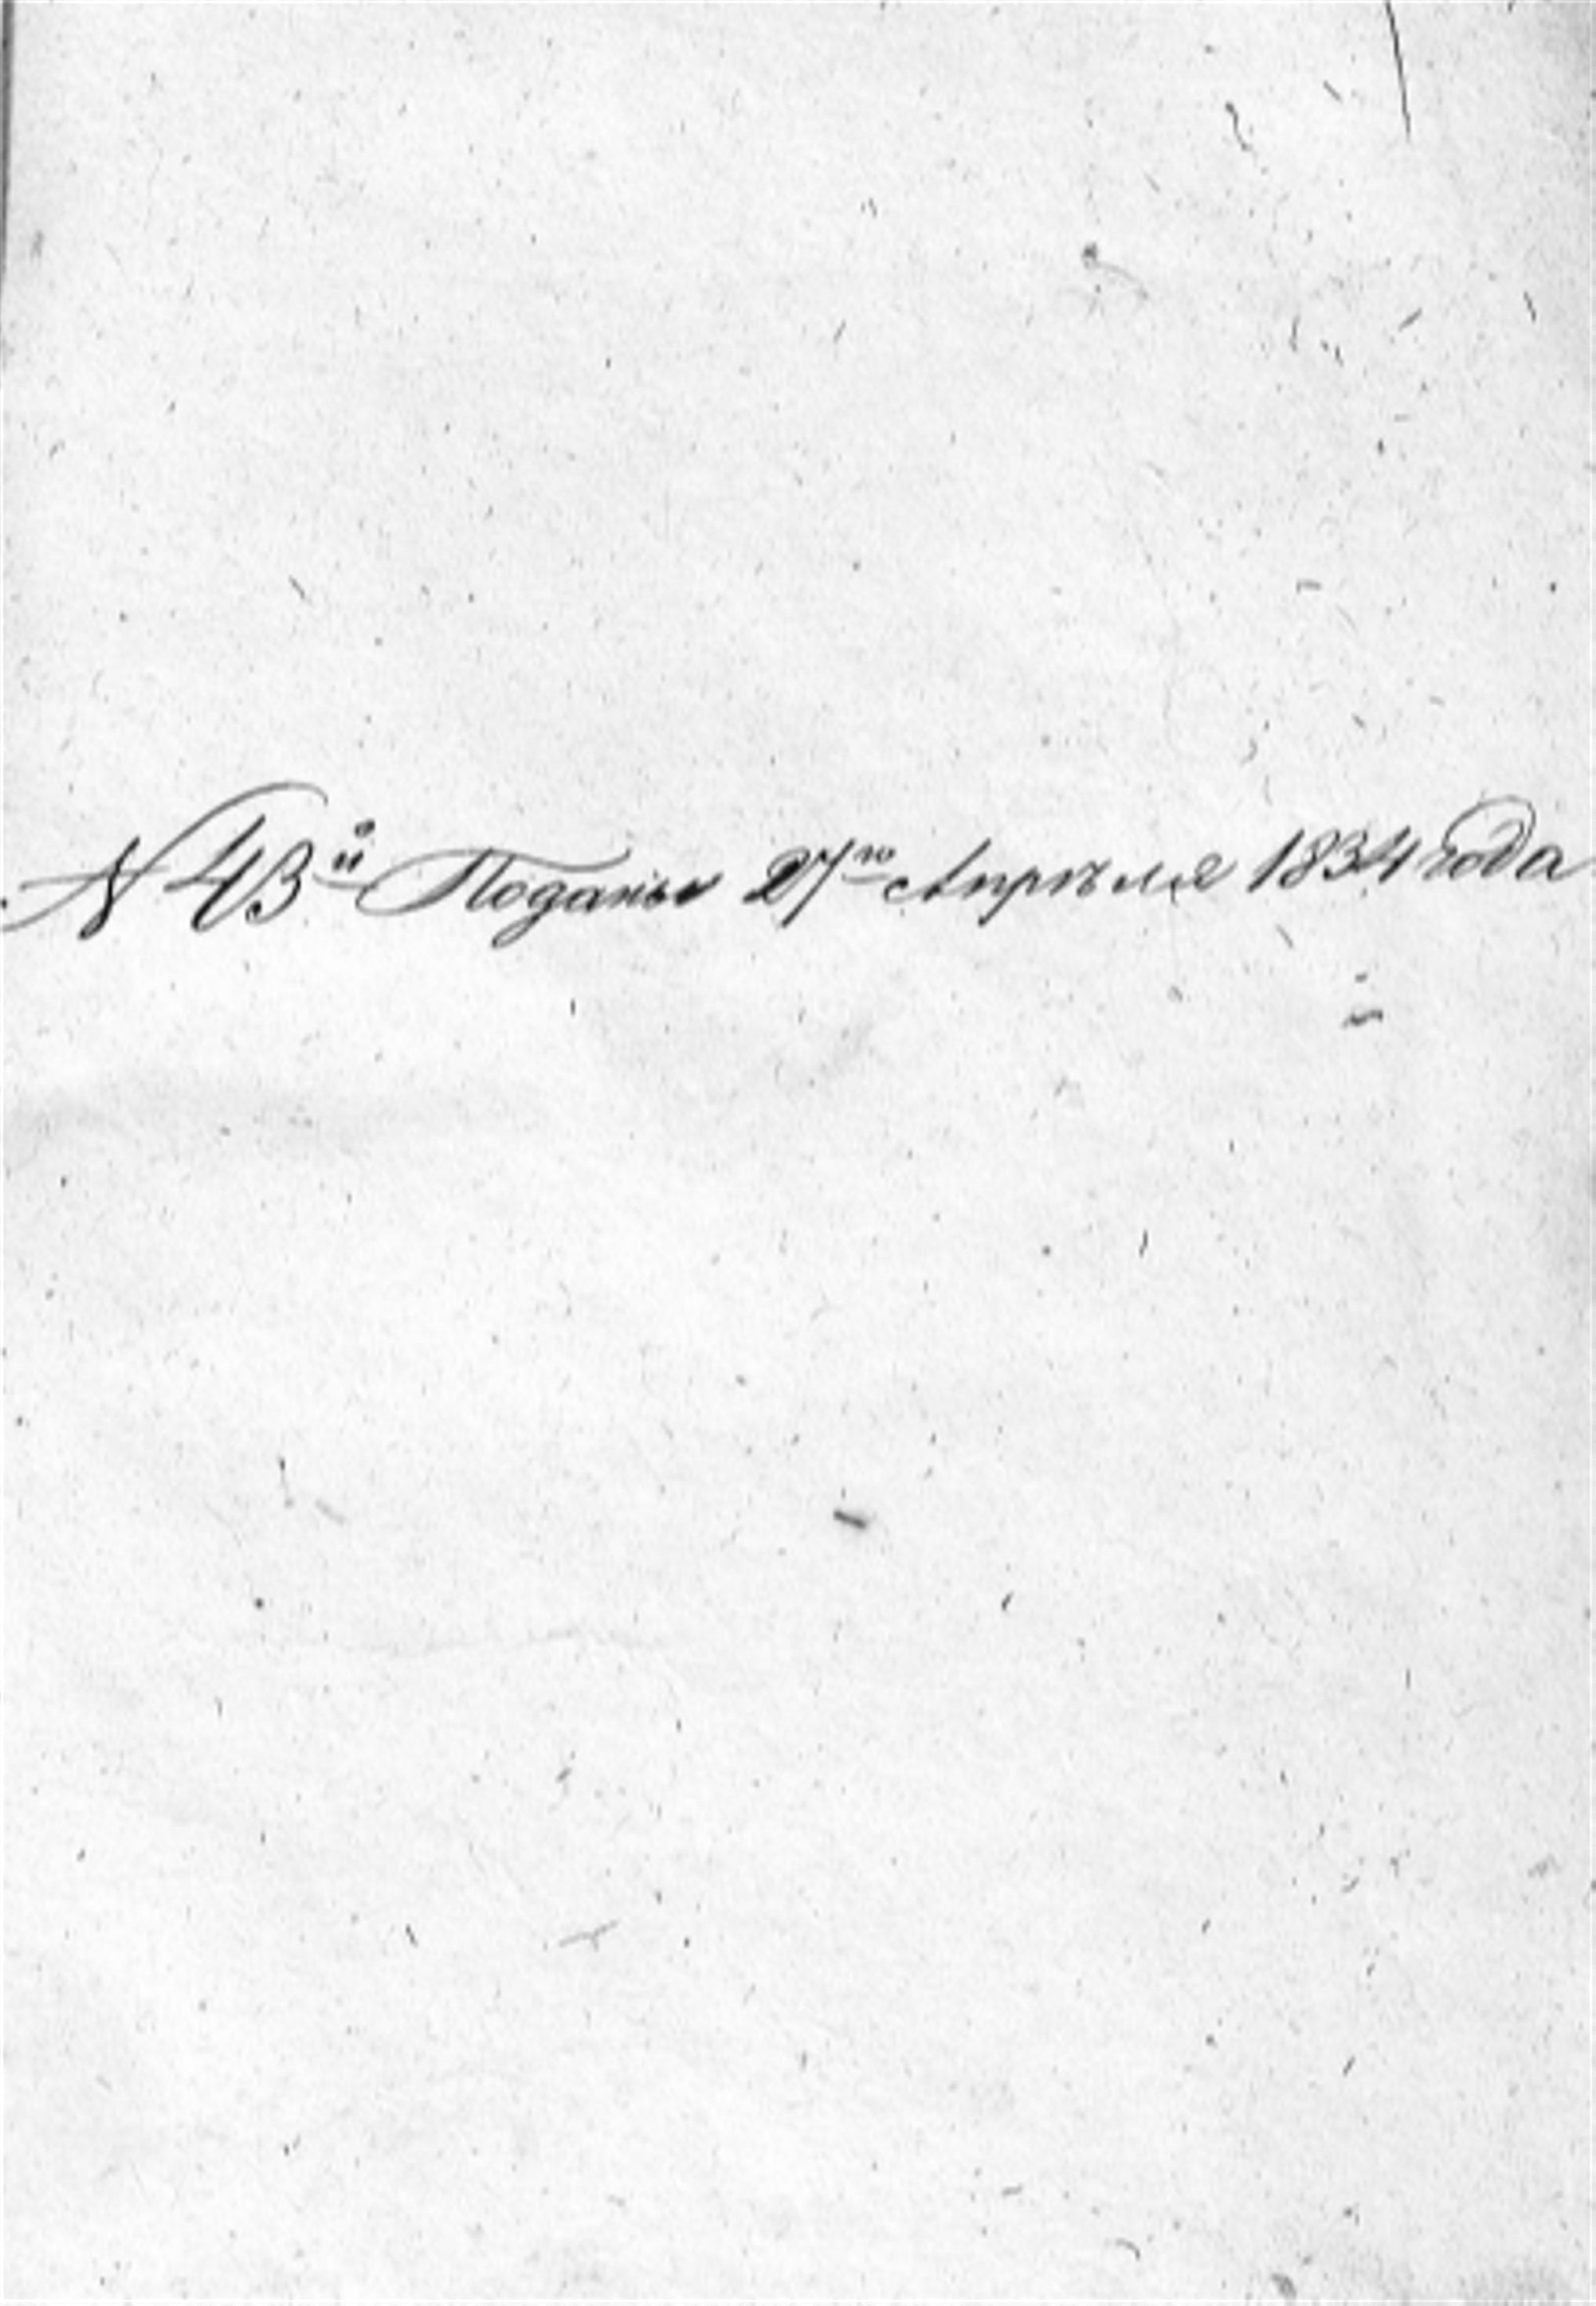 N 43й Поданы 27го Апрѣля 1834 года